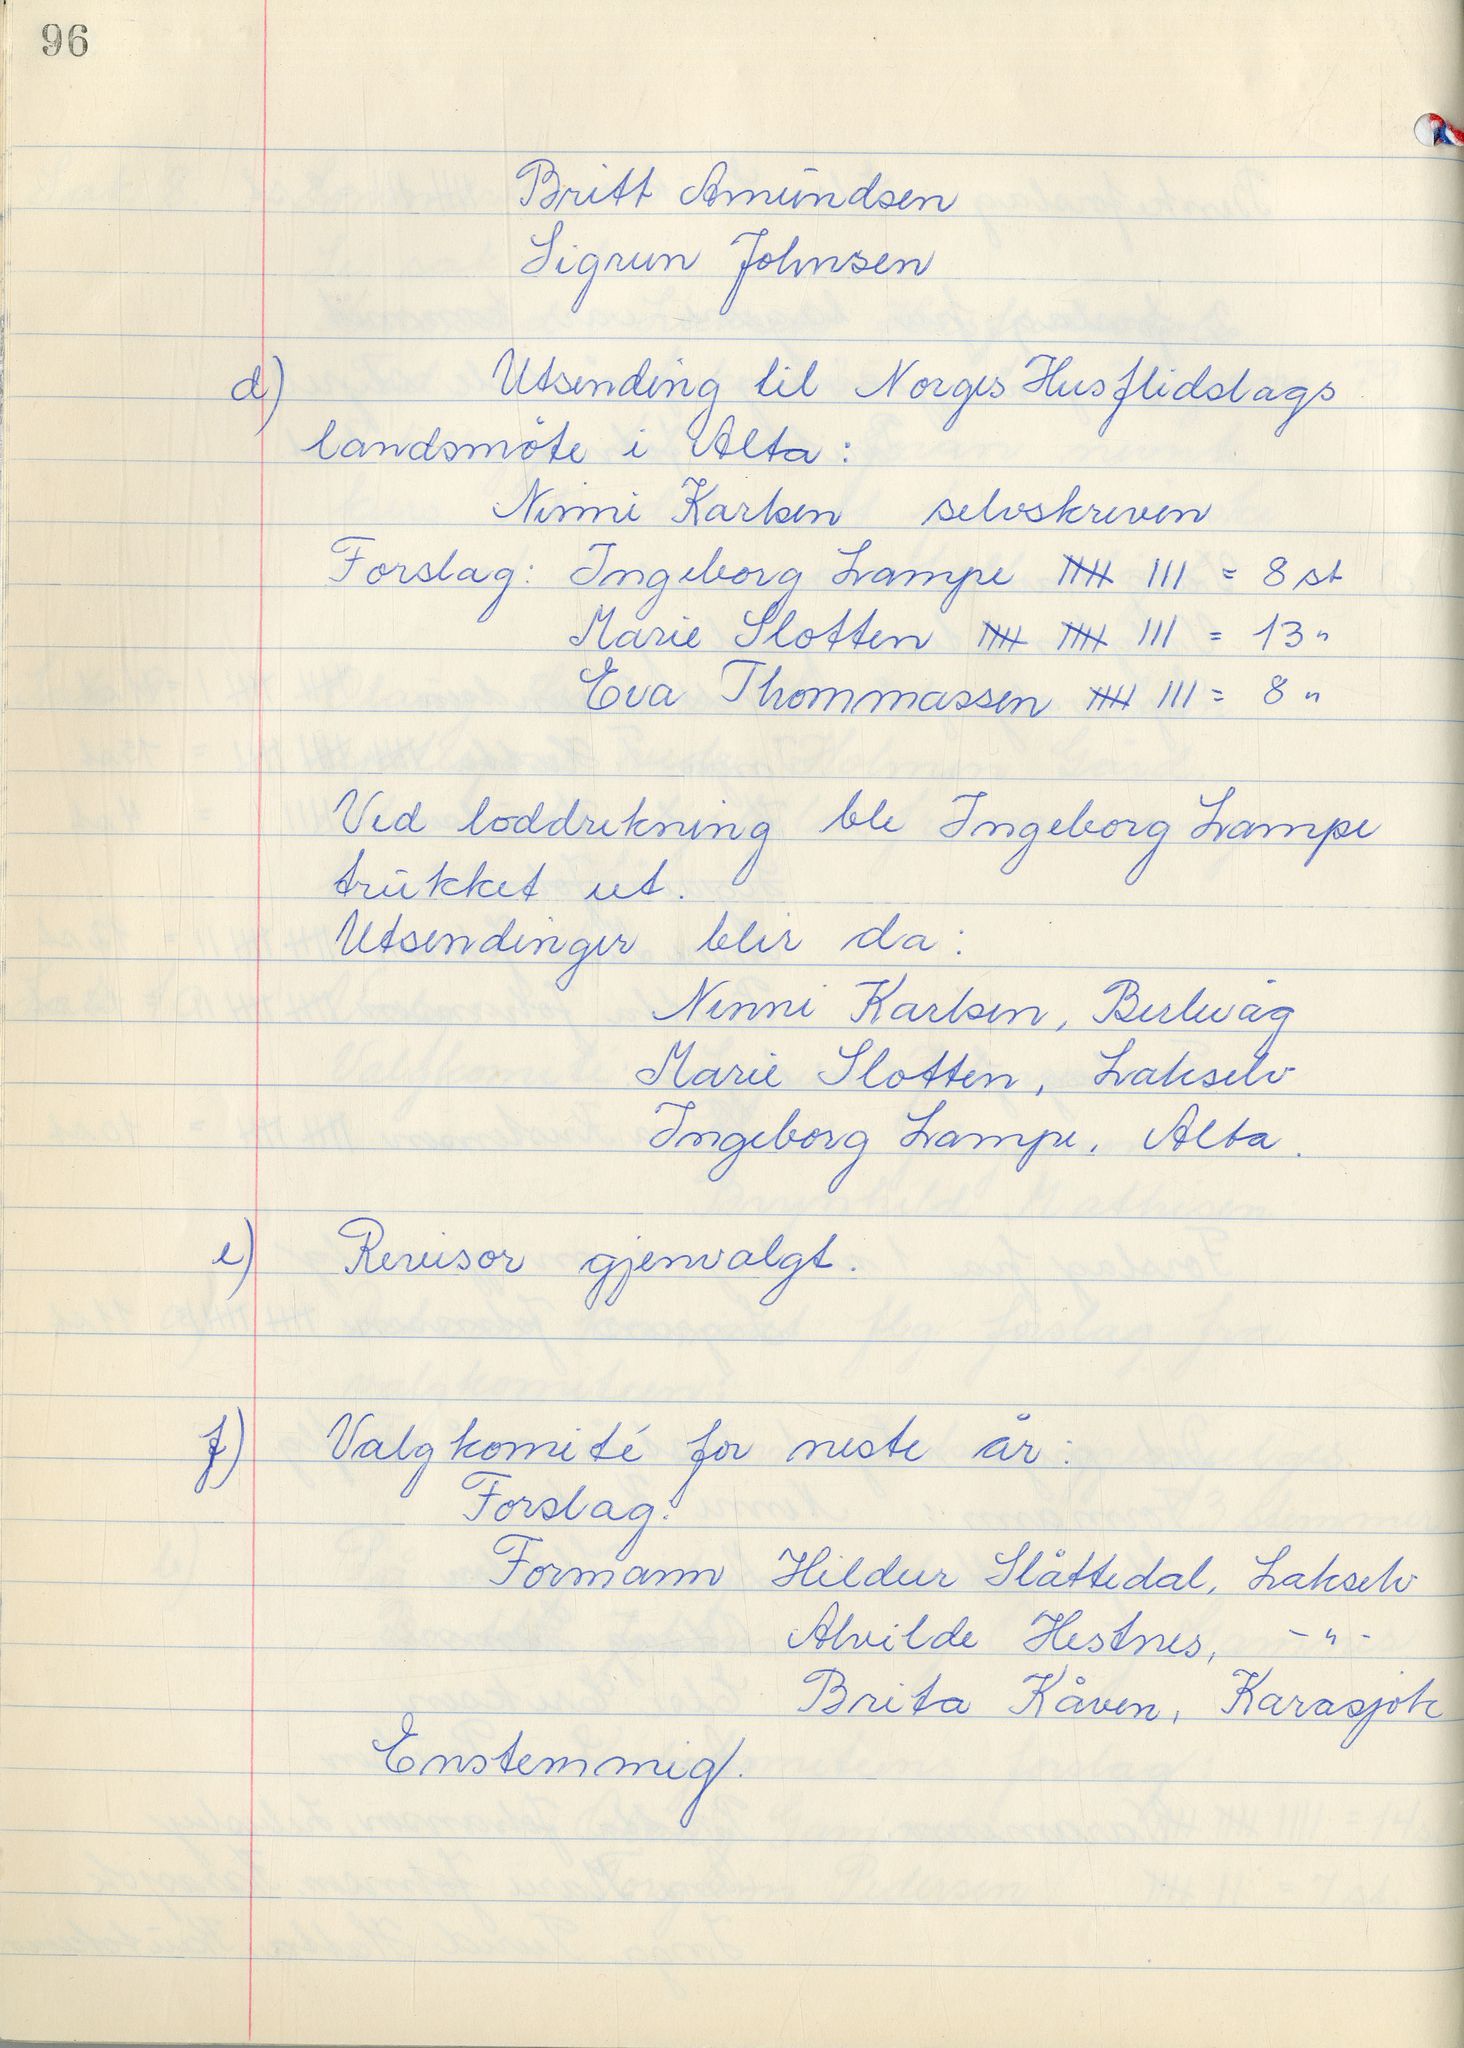 96
Britt Amundsen
Sigrun Johnsen
d) Utsending til Norges Husflidslags
landsmöte i Alta:
Ninni Karlsen selvskreven
Forslag: Ingeborg Lampe 卌 III = 8 st
Marie Slotten 卌 卌 III = 13 "
Eva Thommassen 卌 III = 8 "
Ved loddrekning ble Ingeborg Lampe
trukket ut.
Utsendinger blir da:
Ninni Karlsen, Berlevåg
Marie Slotten, Lakselv
Ingeborg Lampe, Alta.
e) Revisor gjenvalgt.
f) Valgkomité for neste år:
Forslag:
Formann Hildur Slåttedal, Lakselv
Alvilde Hestnes, - " -
Brita Kåven, Karasjok
Enstemmig.